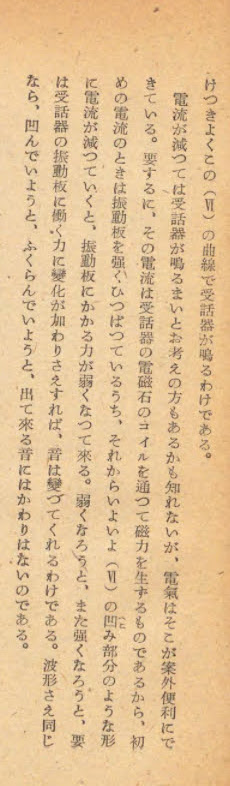 けつきよくこの（Ⅵ）の曲線で受話器が鳴るわけである。
電流が減つては受話器が鳴るまいとお考えの方もあるかも知れないが、電氣はそこが案外便利にで
きている。要するに、その電流は受話器の電磁石のコイルを通つて磁力を生ずるものであるから、初
めの電流のときは振動板を強くひつぱつているうち、それからいよいよ（Ⅵ）の凹み部分のような形
に電流が減つていくと、振動板にかかる力が弱くなつて來る。弱くなろうと、また強くなろうと、要
は受話器の振動板に働く力に變化が加わりさえすれば、音は變つてくれるわけである。波形さえ同じ
なら、凹んでいようと、ふくらんでいようと、出て來る音にはかわりはないのである。